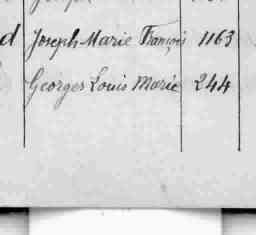 d Joseph Marie François 1163
Georges Louis Marie 244